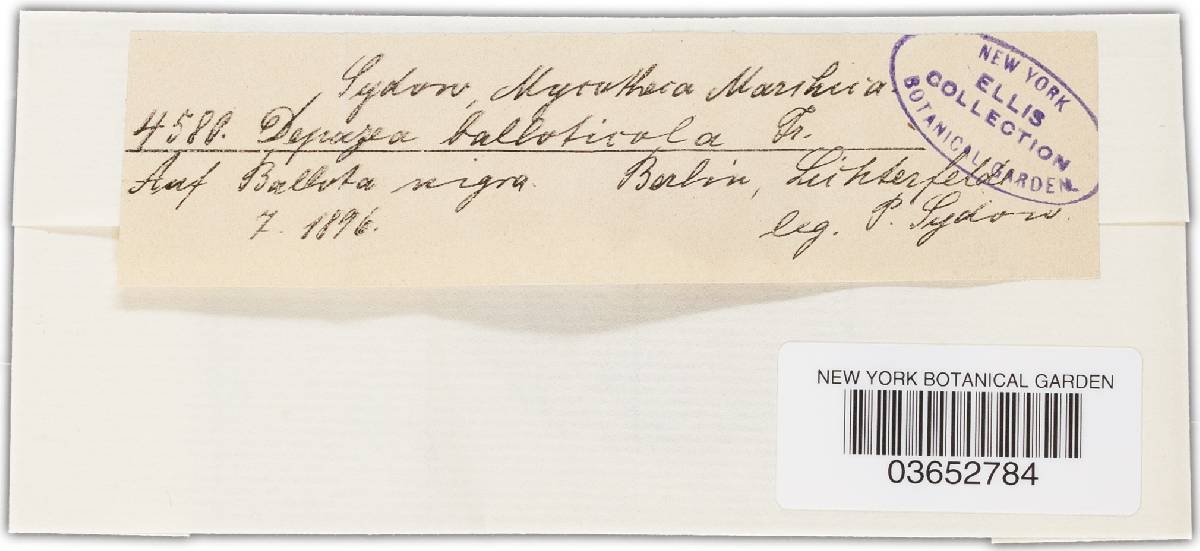 Sydow, Mycotheca Marchica.
4580. Depazea balloticola Fr.
Auf Ballota nigra. Berlin, Lichterfelde
7. 1896. leg. P. Sydow.
NEW YORK
ELLIS
COLLECTION
BOTANICAL GARDEN
NEW YORK BOTANICAL GARDEN
03652784